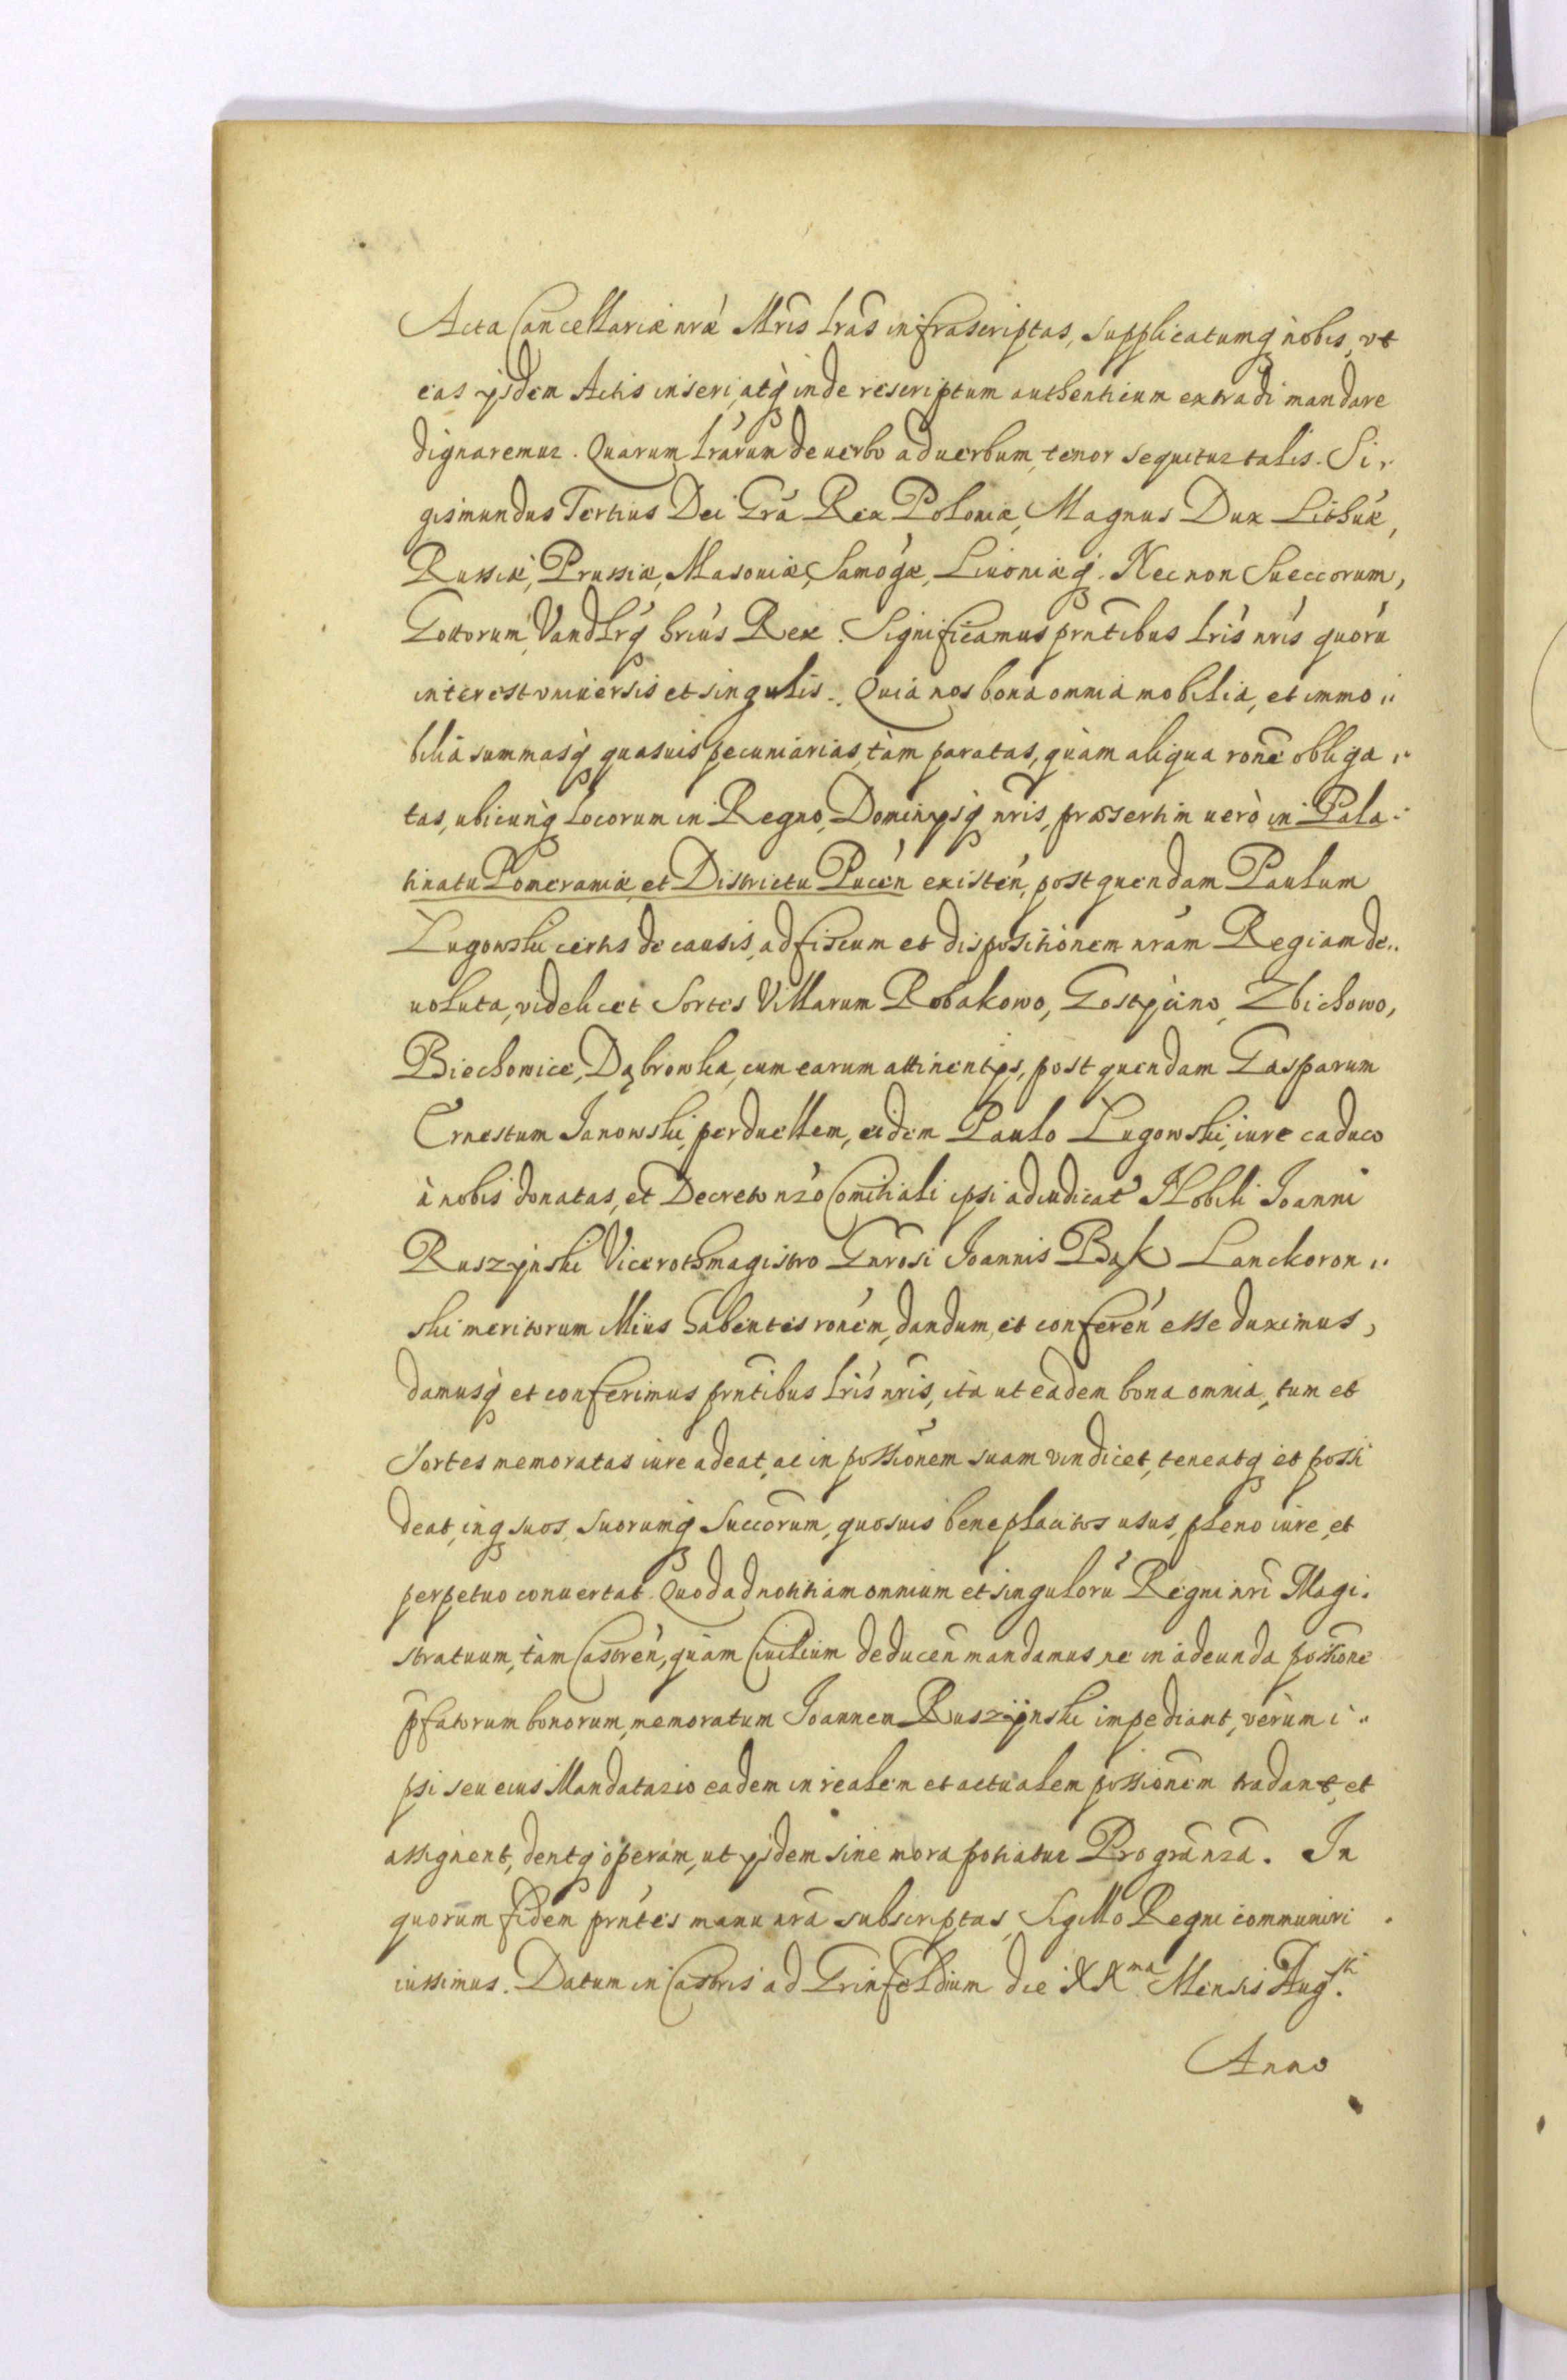 Acta Cancellariæ nræ Mris lras infrascriptas, supplicatumq nobis, vt
eas ysdem Actis inseri, atq inde rescriptum authenticum extradi mandare
dignaremur. Quarum lrarum de verbo ad verbum, tenor sequitur talis. Si-
gismundus Tertius Dei Gra Rex Poloniæ, Magnus Dux Lithuæ,
Russiæ, Prussiæ, Masoviæ, Samogæ, Livoniæq. Necnon Sueccorum,
Gottorum, Vandlrq hrius Rex. Significamus prntibus lris nris quoru
interest vniversis et singulis. Quia nos bona omnia mobilia, et immo"
bilia summasq quasuis pecuniarias, tàm paratas, quàm aliqua rone obliga"
tas, ubicunq locorum in Regno, Dominysq nris, præsertim uerò in Pala-
tinatu Pomeraniæ et Districtu Pucen existen, post quendam Paulum
Lugowski certis de causis, ad fiscum et dispositionem nram Regiam de"
uoluta, videlicet Sortes Villarum Robakowo, Gostycino, Zbichowo,
Biechowice, Dąbrowka, cum earum attinentys, post quendam Gasparum
Ernestum Janowski, perduellem, eidem Paulo Lugowski, iure caduco
à nobis donatas, et Decreto nro Comitiali ipsi adiudicat Nobili Joanni
Ruszynski Vicerothmagistro Gnrosi Joannis Bąk Lanckoron"
ski meritorum Mius habentes ronem, dandum, et conferen esse duximus,
damusq et conferimus prntibus lris nris, ita ut eadem bona omnia, tum et
Sortes memoratas iure adeat, ac in possionem suam vindicet, teneatq et possi
deat, inq suos, suorumq Succorum, quosuis beneplacitos usus, pleno iure, et
perpetuo conuertat. Quod ad notitiam omnium et singuloru Regni nri Magi-
stratuum, tàm Castren, quàm Ciuilium deducen mandamus, ne in adeunda possione
pfatorum bonorum, memoratum Joannem Ruszÿnski impediant, verùm i"
psi seu eius Mandatario eadem in realem et actualem possionem tradant, et
assignent, dentq operam, ut ysdem sine mora potiatur Pro gra nra. In
quorum fidem prntes manu nra subscriptas, Sigillo Regni communiri
iussimus. Datum in Castris ad Grinfeldium die XXma Mensis Augsti.
Anno